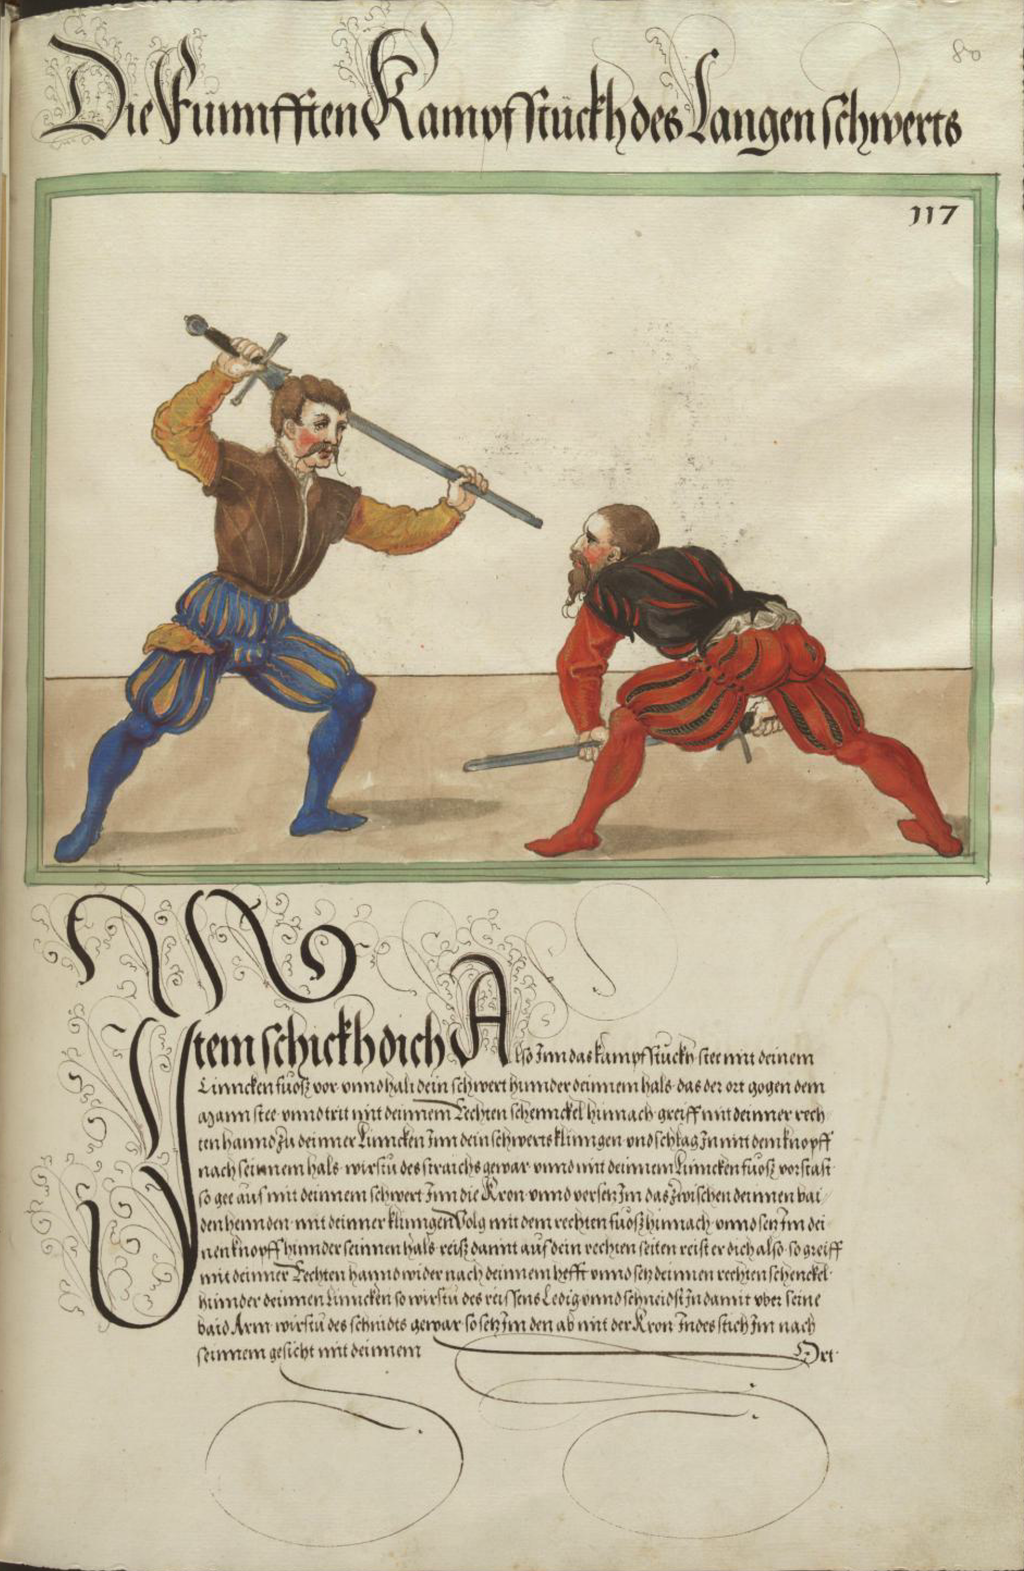 80
Die Fünnfften Kampfstückh des Langen schwerts
117
Item schickh dich Also Inn das kampfstuckh stee mit deinem
Linncken fuosz vor unnd halt dein schwert hinnder deinnem hals das der ort gögen dem
Mann stee unnd trit mit deinnem Rechten schennckel hinnach greiff mit deinner rech
ten hannd zu deinner Linncken Inn dein schwerts klinngen und schlag In mit dem knopff
nach seinnem hals wirstu des straichs gewar unnd mit deinnem Linncken fuosz vorstast
so gee auf mit deinnem schwert Inn die Kron unnd versetz Im das zwischen deinnen bai
den hennden mit deinner klinngen Volg mit dem rechten fuosz hinnach unnd setz Im dei
nen knopff hinnder seinnen hals reisz damit auf dein rechten seiten reist er dich also so greiff
mit deinner Rechten hannd wider nach deinnem hefft unnd setz deinnen rechten schenckel
hinnder deinnen Linncken so wirstu des reissens Ledig unnd schneidst In damit uber seine
baid Arm wirstu des schnidts gewar so setz Im den ab mit der Kron Indes stich Im nach
seinnem gesicht mit deinnem Ort